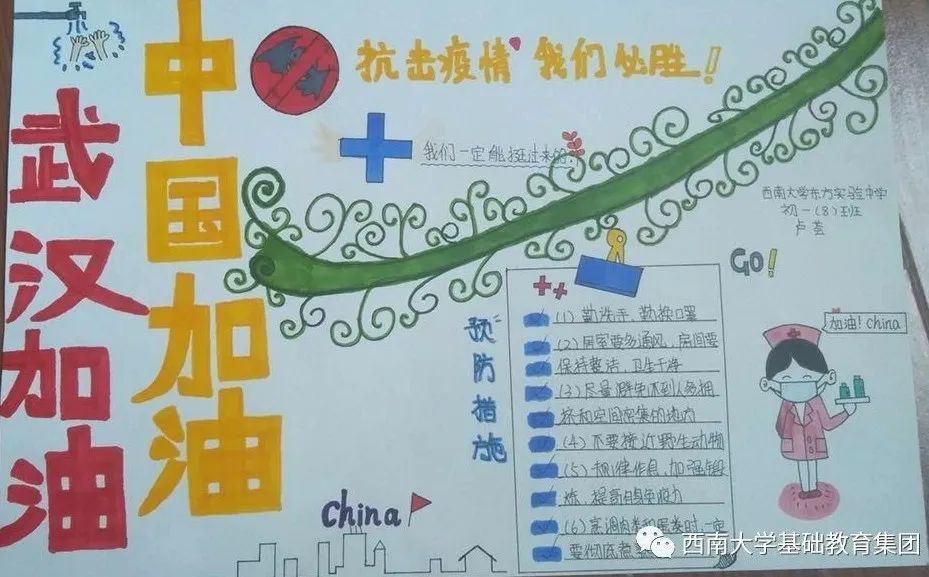 武汉加油
中国加油
抗击疫情 我们必胜！
我们一定能挺过来的.
西南大学东方实验中学
初一（8）班
卢荟
GO!
加油！china
预防措施
（1）勤洗手，勤换口罩
（2）居室要多通风，房间要
保持整洁，卫生干净
（3）尽量避免不到人多拥
挤和空间密集的地方
（4）不要接近野生动物
（5）规律作息，加强锻
炼，提高自身免疫力
（6）烹调肉类和蛋类时，一定
要彻底煮
China
西南大学基础教育集团